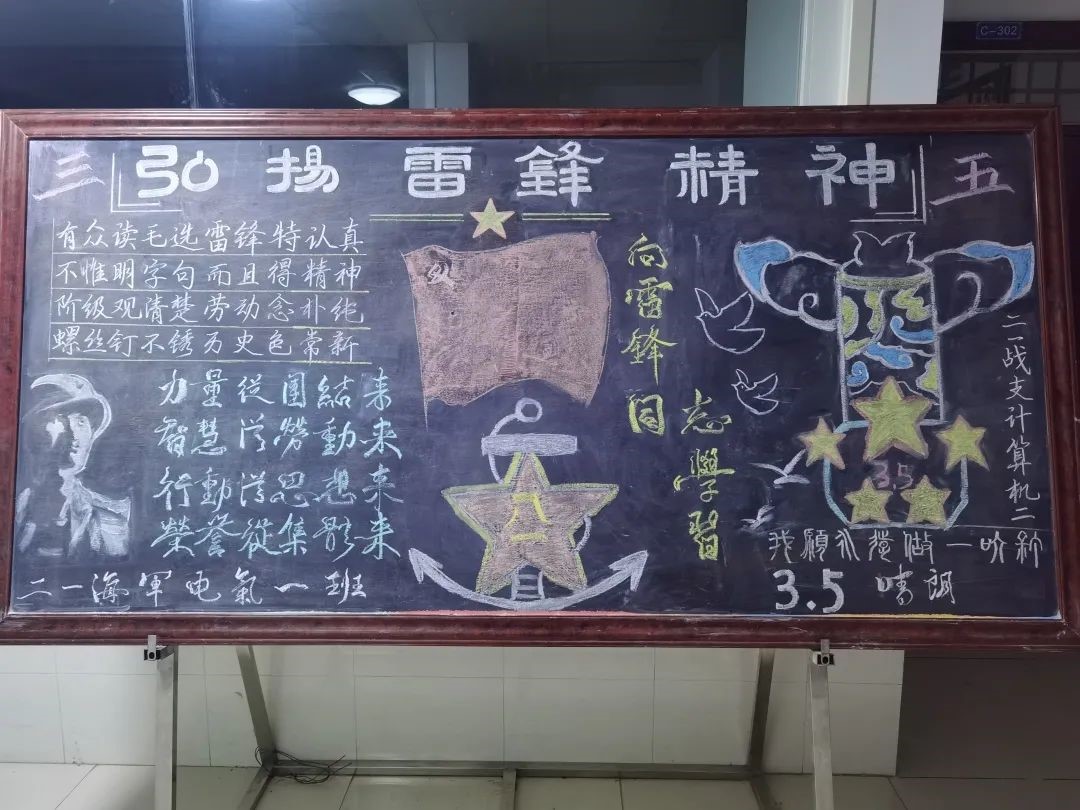 C-302
三 弘揚雷鋒精神 五
有众读毛选雷锋特认真
不惟明字句而且得精神
阶级观清楚劳动念朴纯
螺丝钉不锈历史色常新
力量従團結来
智慧従勞動来
行動従思想来
榮誉従集体来
二一海軍电氣一班
向雷鋒同
志學習
八一
3.5
二战支计算机二
我願永遠做一吶新
3.5 晴朗